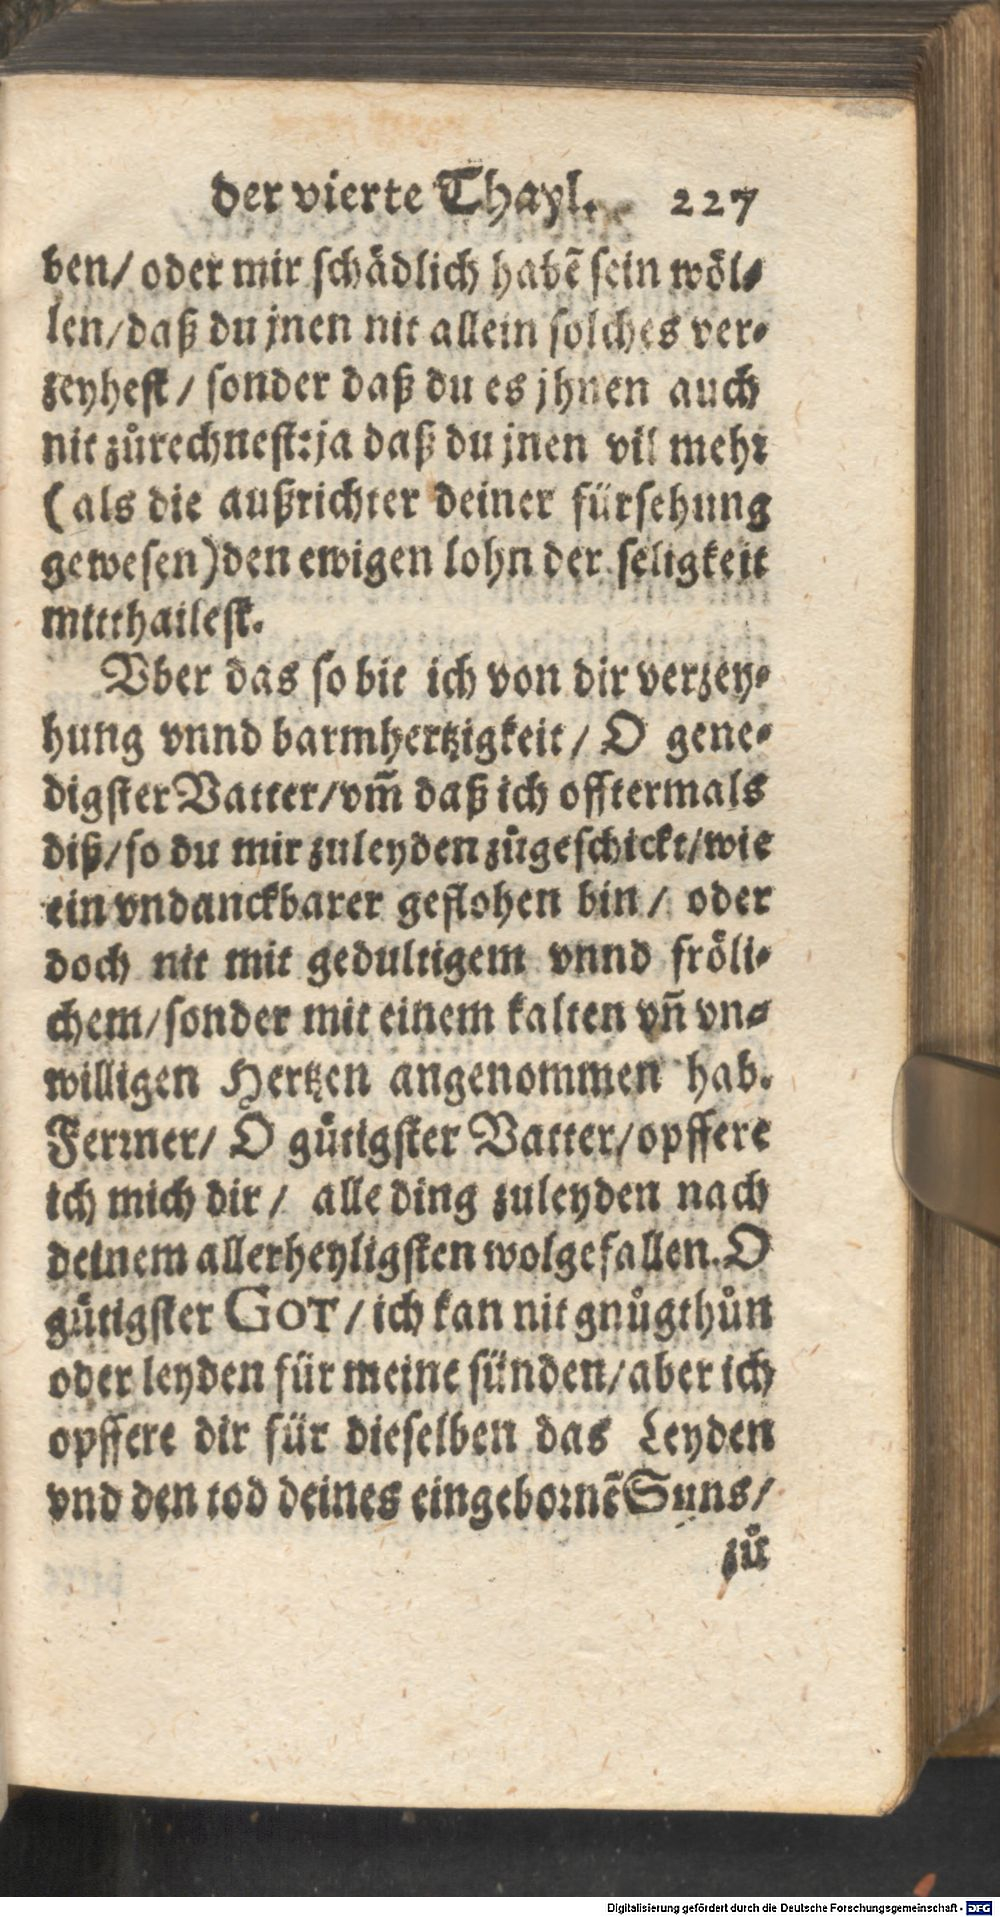 der vierte Thayl. 227
ben/ oder mir schädlich habẽ sein wöl⸗
len/daß du jnen nit allein solches ver⸗
zeyhest / sonder daß du es jhnen auch
nit zůrechnest:ja daß du jnen vil mehr
(als die außrichter deiner fürsehung
gewesen)den ewigen lohn der seligkeit
mittthailest.
Vber das so bit ich von dir verzey⸗
hung vnnd barmhertzigkeit / O gene⸗
digster Vatter/vm̃ daß ich offtermals
diß/so du mir zuleyden zůgeschickt/wie
ein vndanckbarer geflohen bin / oder
doch nit mit gedultigem vnnd fröli⸗
chem/sonder mit einem kalten vñ vn⸗
willigen Hertzen angenommen hab.
Ferrner/ O gütigster Vatter/opffere
ich mich dir / alle ding zuleyden nach
deinem allerheyligsten wolgefallen. O
gütigster GOT / ich kan nit gnůgthůn
oder leyden für meine sünden/aber ich
opffere dir für dieselben das Leyden
vnd den tod deines eingebornẽ Suns/
zů
Digitalisierung gefördert durch die Deutsche Forschungsgemeinschaft - DFG